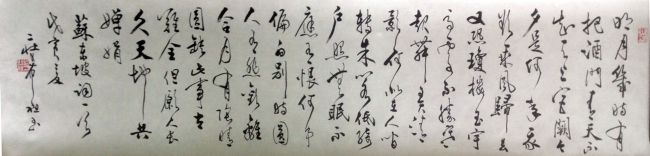 明月幾時有
把酒問青天不
知天上宮闕今
夕是何年我
欲乘風歸去
又恐瓊樓玉宇
高處不勝寒
起舞弄清
影何似在人間
轉朱閣低綺
戶照無眠不
應有恨何事
偏向別時圓
人有悲歡離
合月有陰晴
圓缺此事古
難全但願人長
久天地共
嬋娟
蘇東坡詞一首